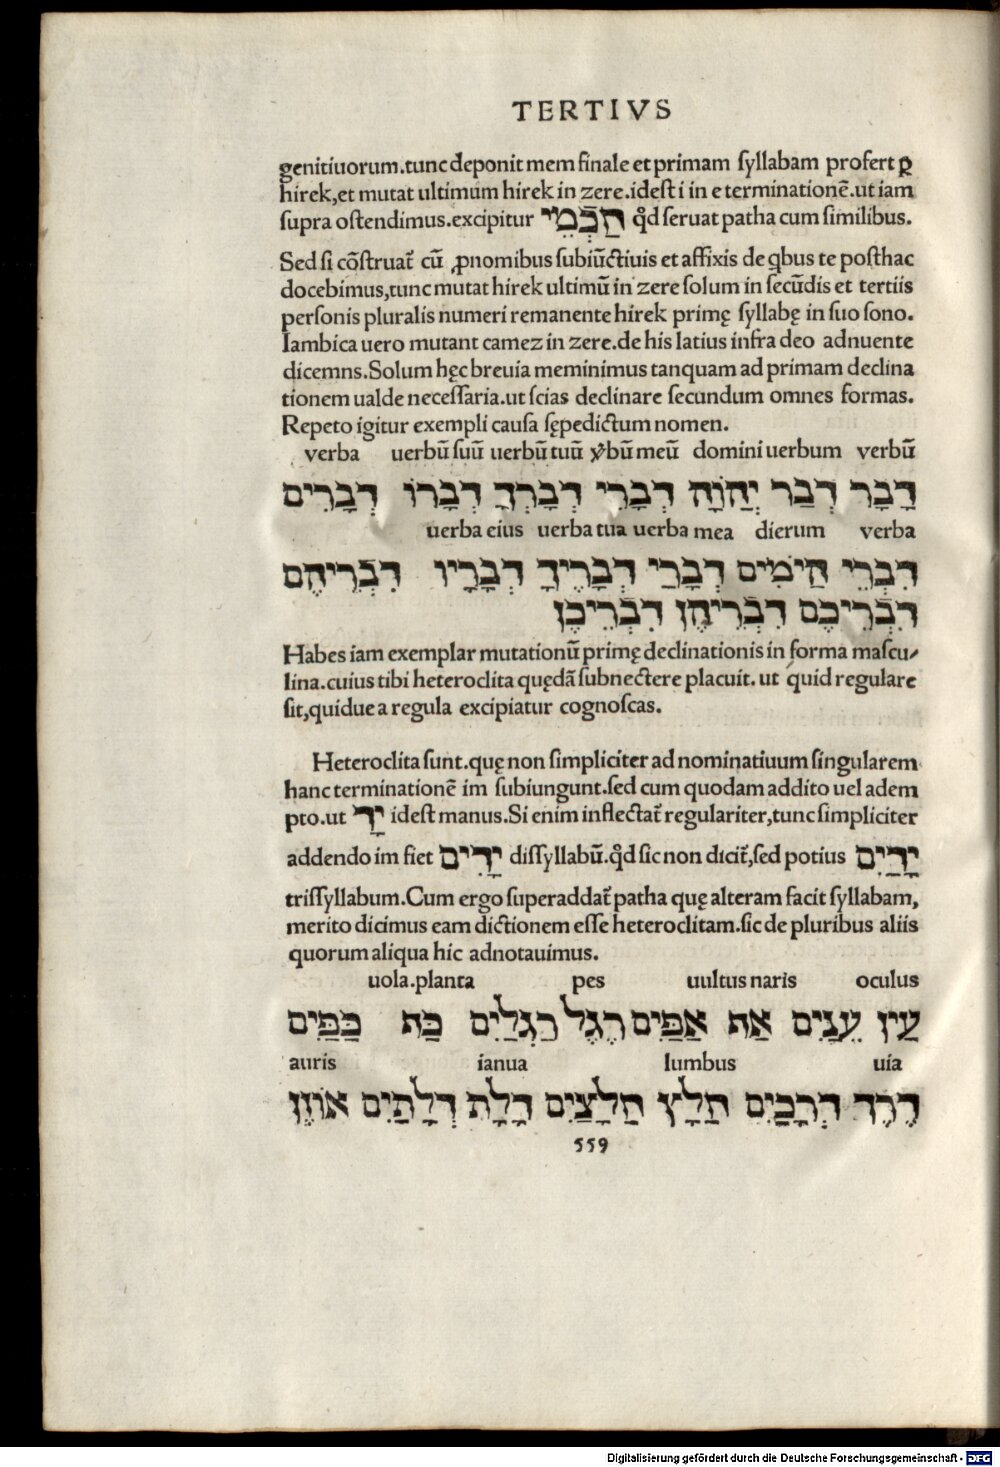 TERTIVS
genitiuorum.tunc deponit mem finale et primam syllabam profert ꝑ
hirek,et mutat ultimum hirek in zere.idest i in e terminationē.ut iam
supra ostendimus.excipitur חַכְמֵי qd̄ seruat patha cum similibus.
Sed si cōstruat᷑ cū ꝓnomibus subiūctiuis et affixis de qbus te posthac
docebimus,tunc mutat hirek ultimū in zere solum in secūdis et tertiis
personis pluralis numeri remanente hirek primę syllabę in suo sono.
Iambica uero mutant camez in zere.de his latius infra deo adnuente
dicemns.Solum hęc breuia meminimus tanquam ad primam declina
tionem ualde necessaria.ut scias declinare secundum omnes formas.
Repeto igitur exempli causa sępedictum nomen.
verba uerbū suū uerbū tuū ꝟbū meū domini uerbum verbū
דָּבָר דְּבַר יְהוָֹה דְּבָרִי דְּבָרְךָ דְּבָרוֹ דְּבָרִים
uerba eius uerba tua uerba mea dierum verba
דִּבְרֵי הַיֹמִים דְּבָרַי דְּבָרֶיךָ דְּבָרָיו דִּבְרֵיהֶם
דִּבְרֵיכֶם דִּבְרֵיהֶן דִּבְרֵיכֶן
Habes iam exemplar mutationū primę declinationis in forma mascu⸗
lina.cuius tibi heteroclita quędā subnectere placuit.ut quid regulare
sit,quidue a regula excipiatur cognoscas.
Heteroclita sunt.quę non simpliciter ad nominatiuum singularem
hanc terminationē im subiungunt.sed cum quodam addito uel adem
pto.ut יָד idest manus.Si enim inflectat᷑ regulariter,tunc simpliciter
addendo im fiet יָדִים dissyllabū.qd̄ sic non dicit᷑,sed potius יָדַיִם
trissyllabum.Cum ergo superaddat᷑ patha quę alteram facit syllabam,
merito dicimus eam dictionem esse heteroclitam.sic de pluribus aliis
quorum aliqua hic adnotauimus.
uola.planta pes uultus naris oculus
עַיִן עֵנַיִם אַף אַפַּיִם רֶגֶל רַגְלַיִם כַּף כַּפַּיִם
auris ianua lumbus uia
דֶרֶךְ דְּרָכַיִם חַלָץ חַלָצַיִם דָלָת דְּלָתַיִם אוֹזֶן
559
Digitalisierung gefördert durch die Deutsche Forschungsgemeinschaft - DFG